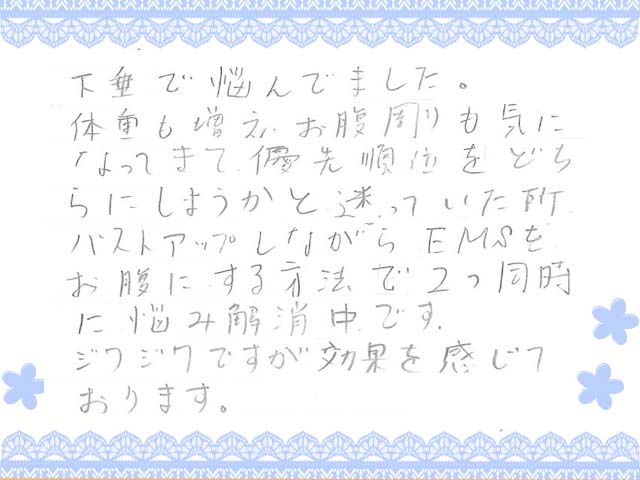 下垂で悩んでました。
体重も増え、お腹周りも気に
なってきて、優先順位をどち
らにしようかと迷っていた所
バストアップしながらEMSを
お腹にする方法で2つ同時
に悩み解消中です。
ジワジワですが効果を感じて
おります。